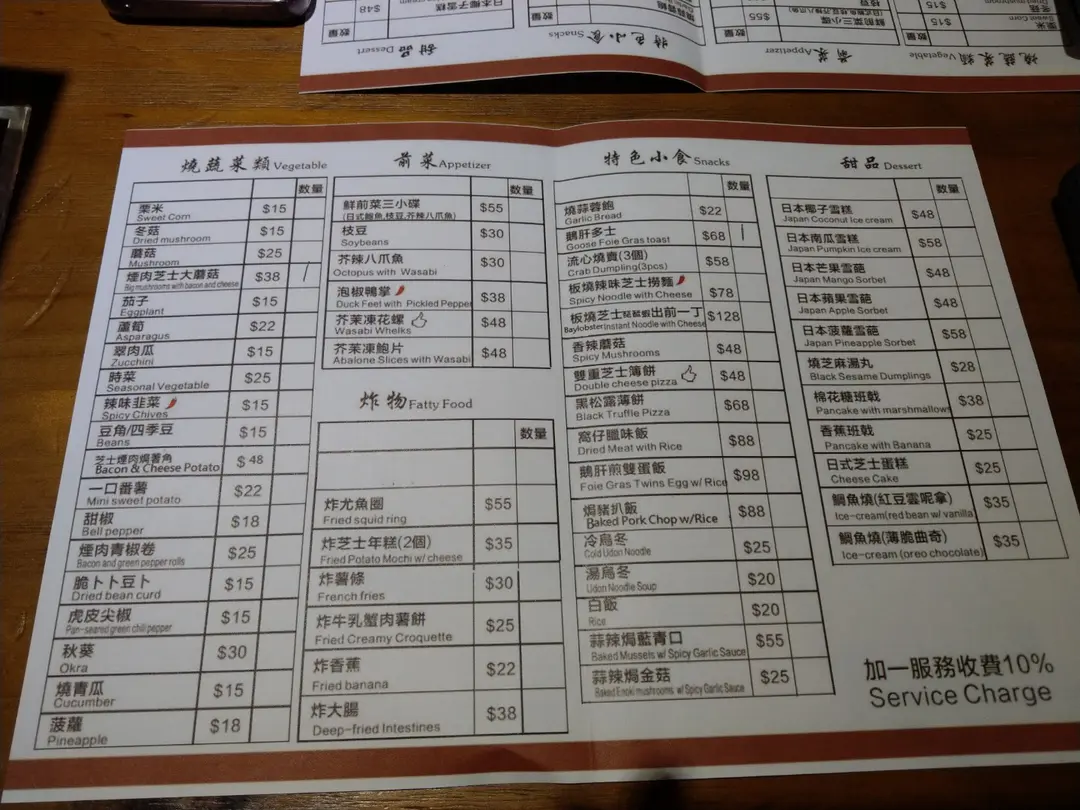 燒蔬菜類 Vegetable
數量
粟米 $15
Sweet Corn
冬菇 $15
Dried mushroom
蘑菇 $25
Mushroom
煙肉芝士大蘑菇 $38 /
Big mushrooms with bacon and cheese
茄子 $15
Eggplant
蘆筍 $22
Asparagus
翠肉瓜 $15
Zucchini
時菜 $25
Seasonal Vegetable
辣味韭菜 $15
Spicy Chives
豆角/四季豆 $15
Beans
芝士煙肉焗薯角 $48
Bacon & Cheese Potato
一口番薯 $22
Mini sweet potato
甜椒 $18
Bell pepper
煙肉青椒卷 $25
Bacon and green pepper rolls
脆卜卜豆卜 $15
Dried bean curd
虎皮尖椒 $15
Pan-seared green chili pepper
秋葵 $30
Okra
燒青瓜 $15
Cucumber
菠蘿 $18
Pineapple
前菜 Appetizer
數量
鮮前菜三小碟 $55
(日式鮑魚,枝豆,芥辣八爪魚)
枝豆 $30
Soybeans
芥辣八爪魚 $30
Octopus with Wasabi
泡椒鴨掌 $38
Duck Feet with Pickled Pepper
芥茉凍花螺 $48
Wasabi Whelks
芥茉凍鮑片 $48
Abalone Slices with Wasabi
炸物 Fatty Food
數量
炸尤魚圈 $55
Fried squid ring
炸芝士年糕(2個) $35
Fried Potato Mochi w/ cheese
炸薯條 $30
French fries
炸牛乳蟹肉薯餅 $25
Fried Creamy Croquette
炸香蕉 $22
Fried banana
炸大腸 $38
Deep-fried Intestines
特色小食 Snacks
數量
燒蒜蓉飽 $22
Garlic Bread
鵝肝多士 $68 /
Goose Foie Gras toast
流心燒賣(3個) $58
Crab Dumpling(3pcs)
板燒辣味芝士撈麵 $78
Spicy Noodle with Cheese
板燒芝士琵琶蝦出前一丁 $128
Baylobster Instant Noodle with Cheese
香辣蘑菇 $48
Spicy Mushrooms
雙重芝士薄餅 $48
Double cheese pizza
黑松露薄餅 $68
Black Truffle Pizza
窩仔臘味飯 $88
Dried Meat with Rice
鵝肝煎雙蛋飯 $98
Foie Gras Twins Egg w/ Rice
焗豬扒飯 $88
Baked Pork Chop w/Rice
冷烏冬 $25
Cold Udon Noodle
湯烏冬 $20
Udon Noodle Soup
白飯 $20
Rice
蒜辣焗藍青口 $55
Baked Mussels w/ Spicy Garlic Sauce
蒜辣焗金菇 $25
Baked Enoki mushrooms w/ Spicy Garlic Sauce
甜品 Dessert
數量
日本椰子雪糕 $48
Japan Coconut Ice cream
日本南瓜雪糕 $58
Japan Pumpkin Ice cream
日本芒果雪葩 $48
Japan Mango Sorbet
日本蘋果雪葩 $48
Japan Apple Sorbet
日本菠蘿雪葩 $58
Japan Pineapple Sorbet
燒芝麻湯丸 $28
Black Sesame Dumplings
棉花糖班戟 $38
Pancake with marshmallows
香蕉班戟 $25
Pancake with Banana
日式芝士蛋糕 $25
Cheese Cake
鯛魚燒(紅豆雲呢拿) $35
Ice-cream(red bean w/ vanilla
鯛魚燒(薄脆曲奇) $35
Ice-cream (oreo chocolate)
加一服務收費10%
Service Charge
燒蔬菜類 Vegetable
數量
粟米 $15
Sweet Corn
冬菇 $15
Dried mushroom
前菜 Appetizer
數量
鮮前菜三小碟 $55
特色小食 Snacks
數量
甜品 Dessert
數量
日本椰子雪糕 $48